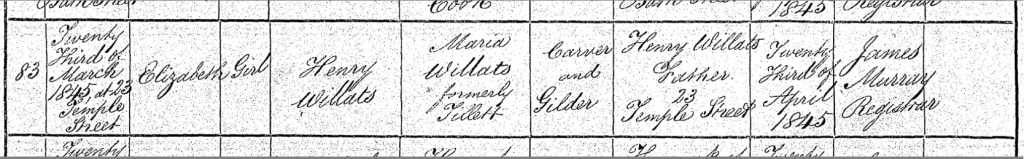 Cook
1845
Registrar
83
Twenty
Third of
March
1845 at 23
Temple
Street
Elizabeth
Girl
Henry
Willats
Maria
Willats
formerly
Tillett
Carver
and
Gilder
Henry Willats
Father
23
Temple Street
Twenty
Third of
April
1845
James
Murray
Registrar
Twenty
Twenty